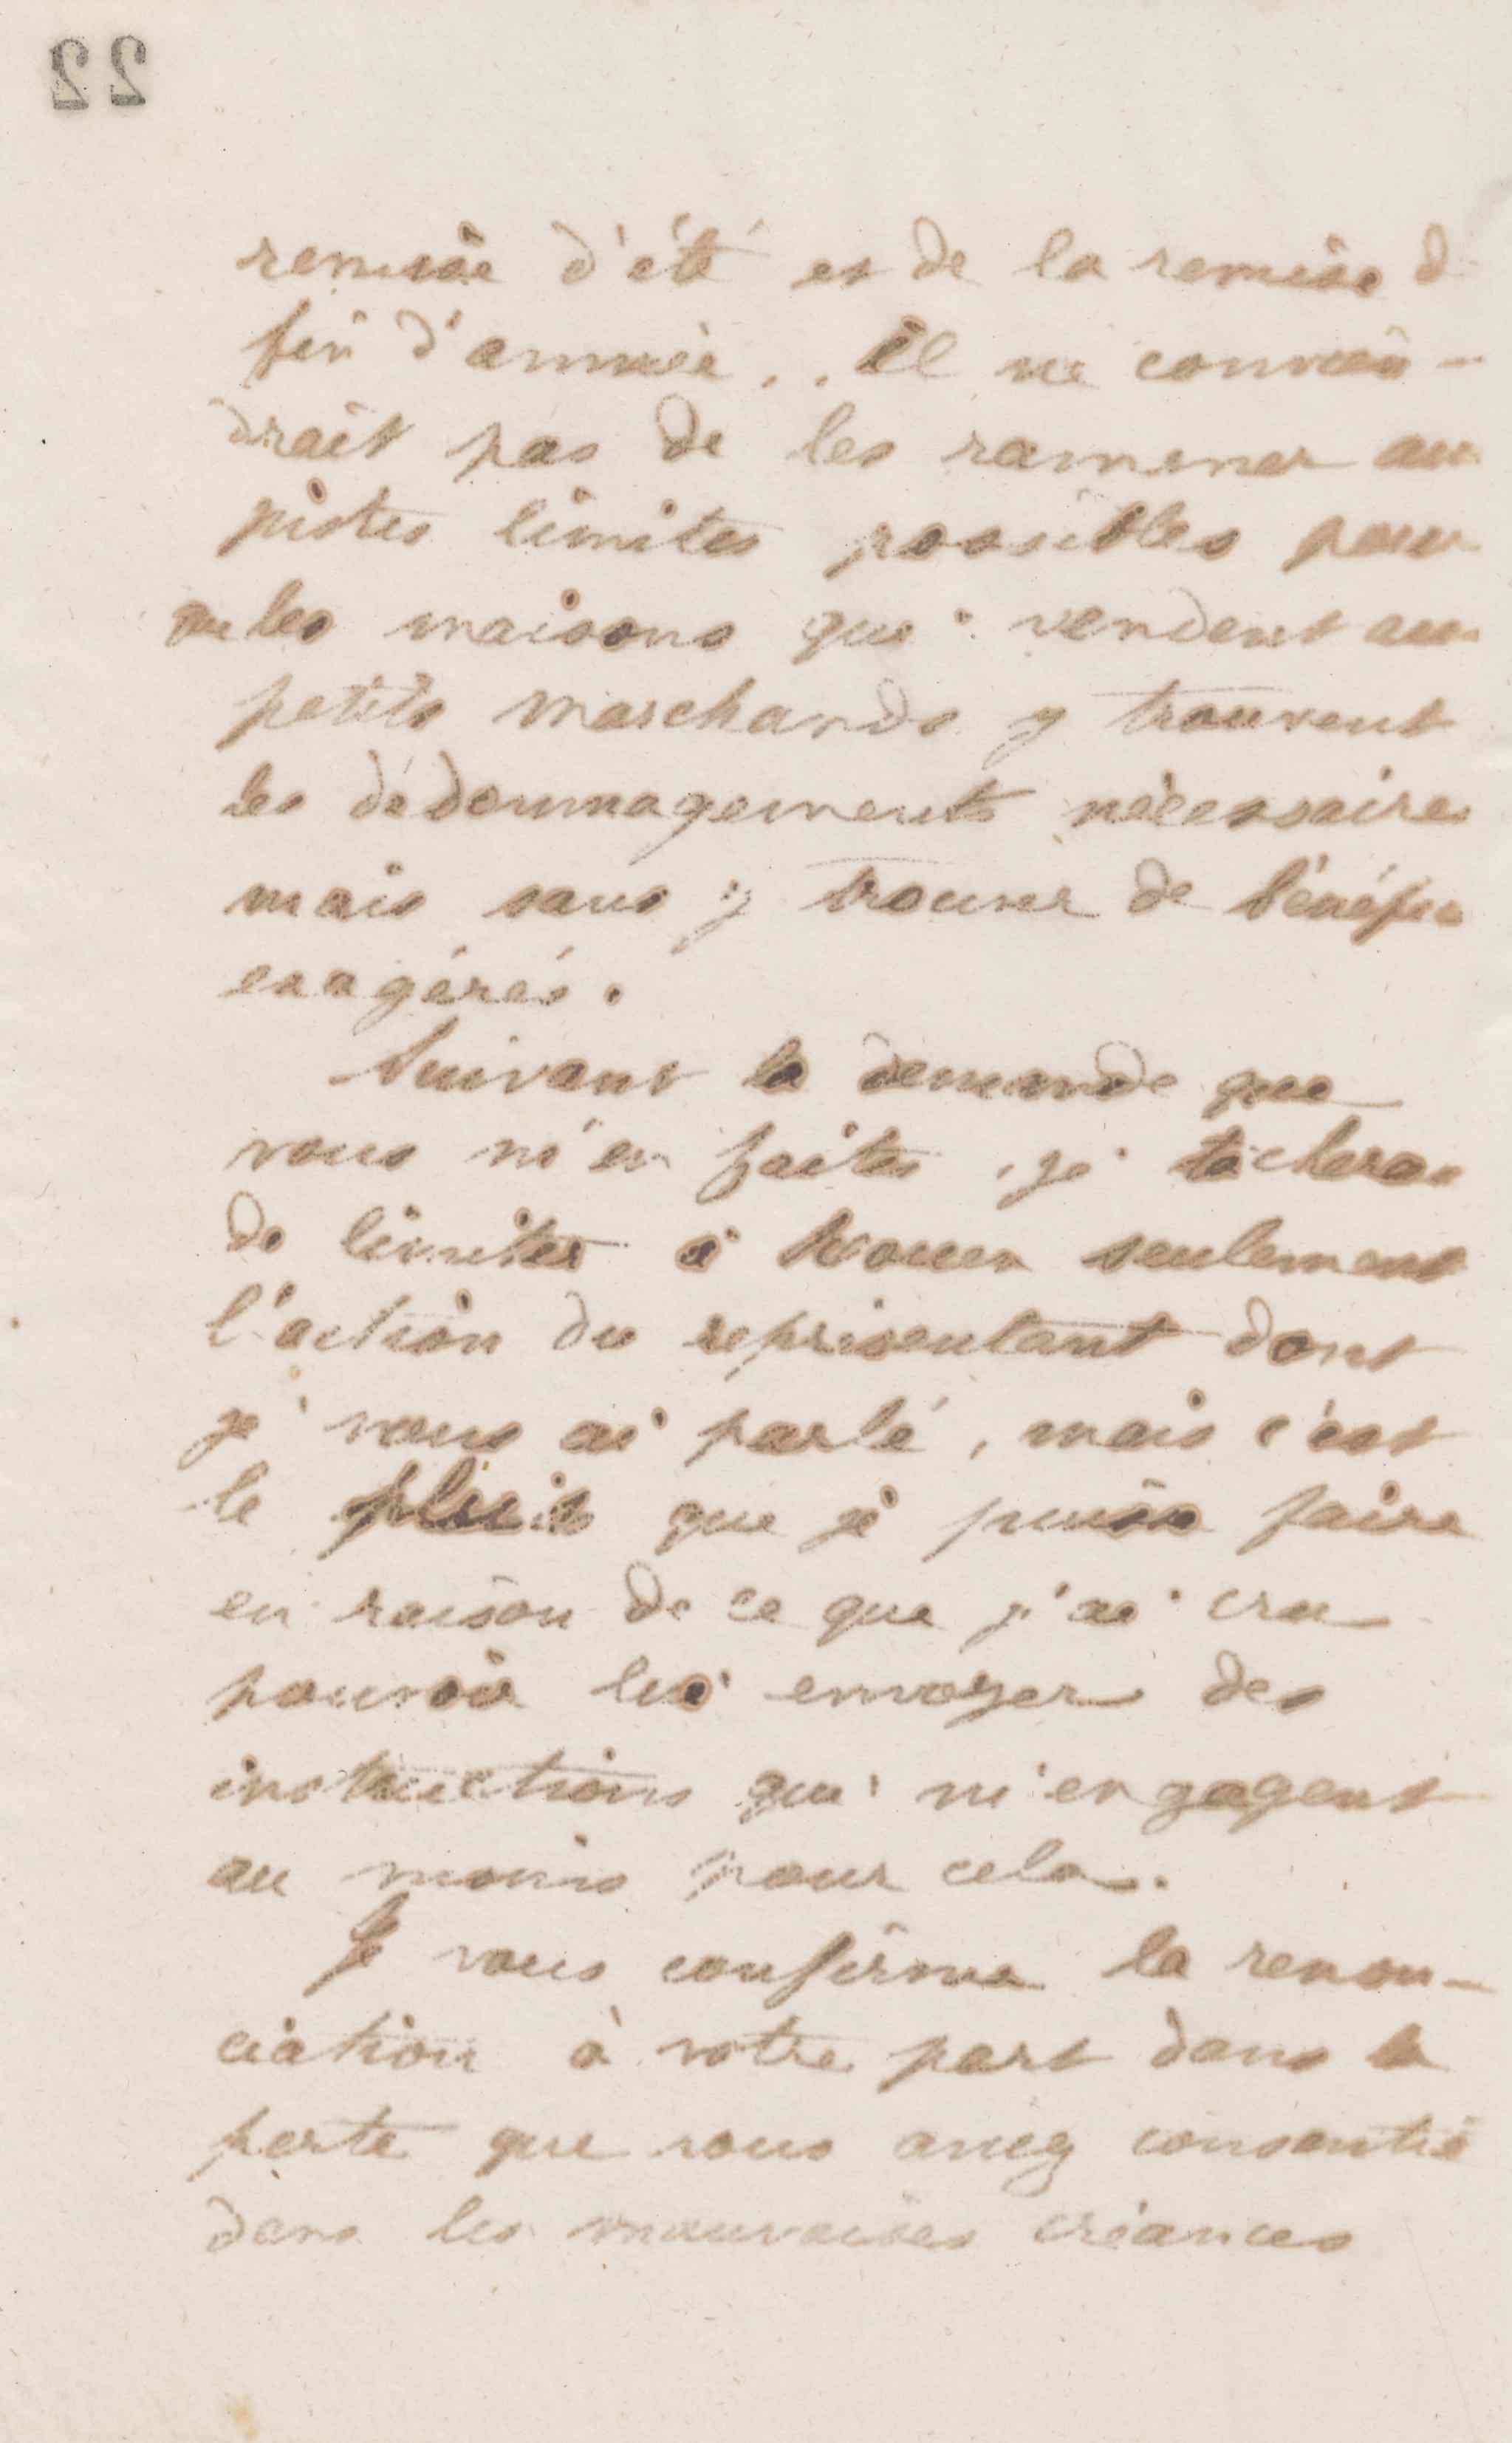 22
remise d'été et de la remise d
fin d'année.. Il ne convien-
drait pas de les ramener au
justes limites possibles pour
que les maisons qui vendent aux
petits marchands y trouvent
les dédommagements nécessaires
mais sans y trouver de bénéfices
exagérés.
Suivant la demande que
vous m'en faites, je tâcherai
de limiter à Rouen seulement
l'action du représentant dont
je vous ai parlé, mais c'est
le plus que je puisse faire
en raison de ce que j'ai cru
pouvoir lui envoyer des
instructions qui m'engagent
au moins pour cela.
Je vous confirme la renon-
ciation à votre part dans la
perte que vous avez consentie
dans les mauvaises créances